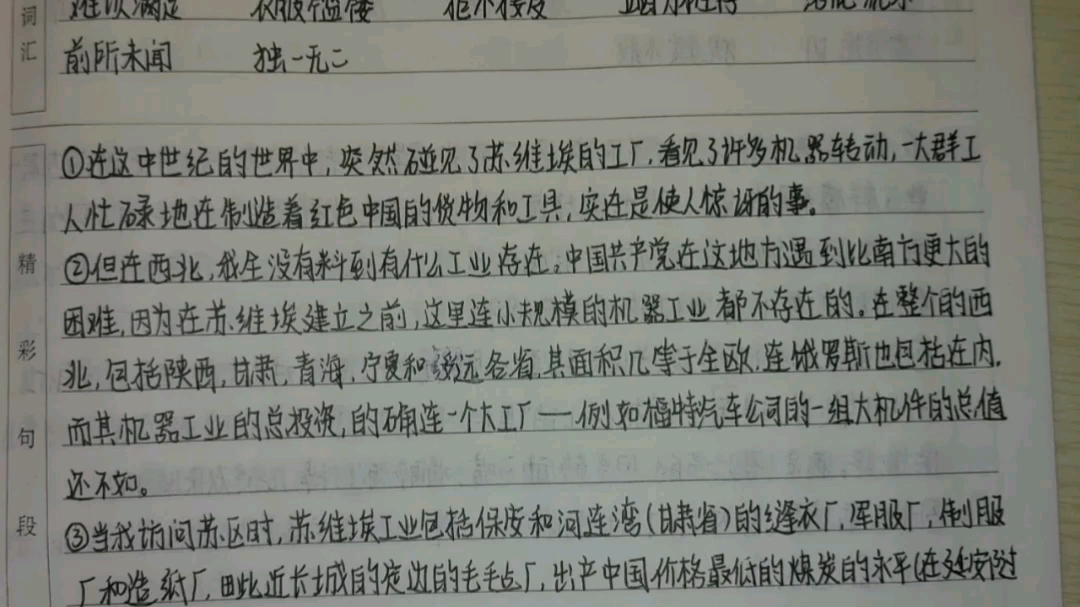 词汇
难以满足 衣服褴褛
前所未闻 独一无二
精彩句段
①在这中世纪的世界中，突然碰见了苏维埃的工厂，看见了许多机器转动，一大群工
人忙碌地在制造着红色中国的货物和工具，实在是使人惊讶的事。
②但在西北，我全没有料到有什么工业存在。中国共产党在这地方遇到比南方更大的
困难，因为在苏维埃建立之前，这里连小规模的机器工业都不存在的。在整个的西
北，包括陕西，甘肃，青海，宁夏和绥远各省，其面积几等于全欧，连俄罗斯也包括在内，
而其机器工业的总投资，的确连一个大工厂——例如福特汽车公司的一组大机件的总值
还不如。
③当我访问苏区时，苏维埃工业包括保安和河连湾（甘肃省）的缝衣厂，军服厂，制服
厂和造纸厂，由此近长城的定边的毛毛毡厂，出产中国价格最低的煤炭的永平（在延安